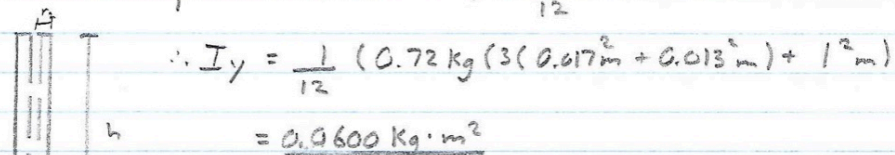 r₁
12
∴ I_y = 1/12 (0.72 kg (3(0.017²m + 0.013²m) + 1²m)
h
= 0.0600 kg·m²